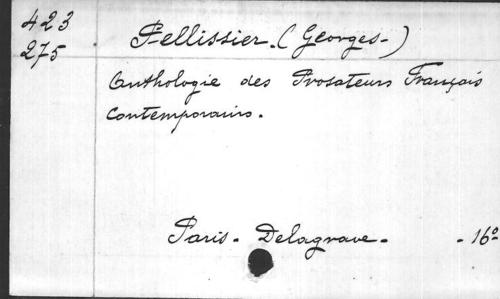 423
275
Pellissier. (Georges-)
Anthologie des Prosateurs Français
Contemporains.
Paris - Delagrave - - 16º